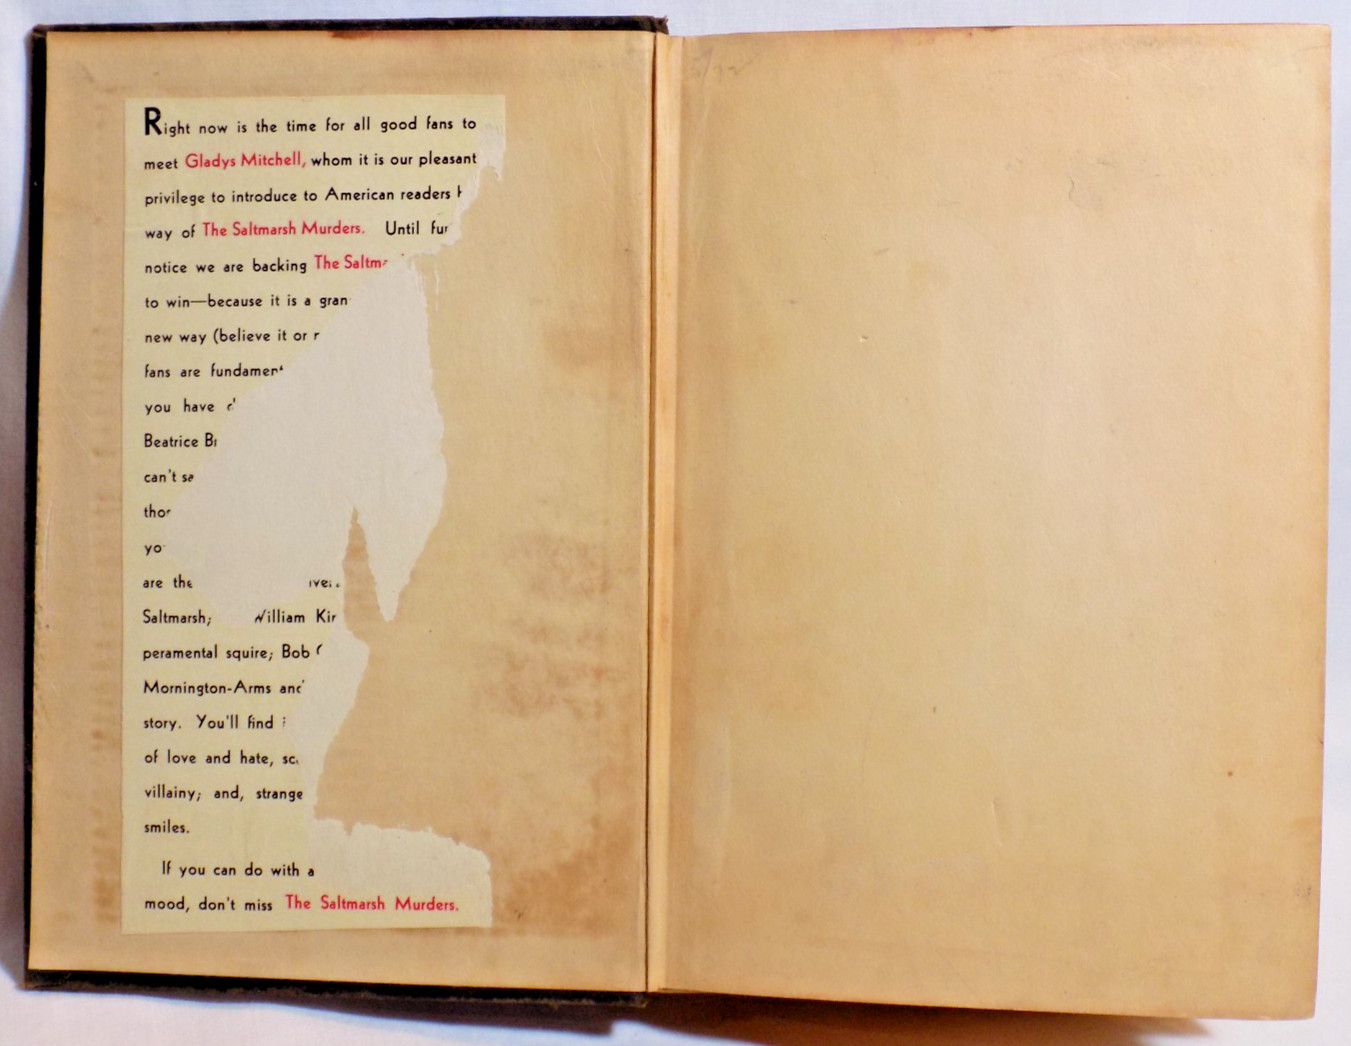 Right now is the time for all good fans to
meet Gladys Mitchell, whom it is our pleasant
privilege to introduce to American readers
way of The Saltmarsh Murders. Until
notice we are backing The
to win—because it is a
new way (believe it or
fans are
you have
Beatrice
can't
are
Saltmarsh; William
peramental squire; Bob
Mornington-Arms
story. You'll find
of love and hate,
villainy; and, strange
smiles.
If you can do with a
mood, don't miss The Saltmarsh Murders.